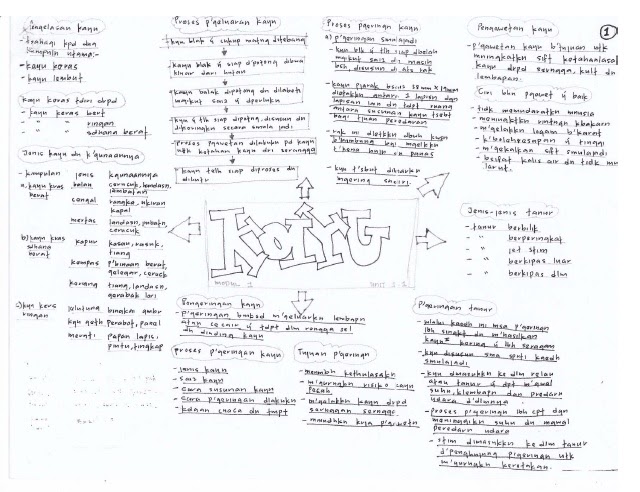 1
Pengelasan kayu
- kayu keras
- kayu lembut
kayu keras tdiri drpd
- kayu keras berat
- " " ringan
- " " sdhana berat.
Jenis kayu dn k'gunaannya
- kumpulan jenis kegunaannya
a. kayu kras berat
balau
cerucuk, landasan, jambatan
cengal
rangka, ukiran kapal
mertas
landasn, jmbatn, cerucuk
b) kayu kras sdhana berat
kapur
kasau, rasuk, tiang
kompas
p'binaan berat, gelegar, cerucuk
keruing
tiang, landasn, gerabak lori
c) kyu kers ringan
jelutung
bingkai gmbr
kyu gtah
Perabot, panel
meranti
papan lapis, pintu, tingkap
Proses p'geluaran kayu
kayu blak yg cukup matng ditebang
kayu blak yg siap d'potong dibawa kluar dari hutan
kayu balak dipotong dn dilabel mngikut saiz yg diperlukn
kayu yg tlh siap dipotong, disusun dn dikeringkn secara semula jadi
proses pngawetan dilakukn pd kayu utk ketahan kayu dri serangga
kayu telh siap diproses dn
Proses pgeringan kayu
a) p'geringan smulajadi
- kyu blk yg tlh siap dibelah mngikut saiz yg masih bsh, disusun di ats blok
- kayu pjarak bsaiz 38 mm x 19mm diletakkn antara 2 lapisan dan lapisan lain dn tdpt ruang antara susunan kayu tsebt bagi tjuan peredaran
- kyu t'sbut dibiarkn mgering sndiri.
Pengawetan kayu
- p'awetan kayu b'tujuan utk mningkatkn sift ketahanlasakn kayu drpd serangga, kulat dn lembapan.
Ciri bhn pgawet yg baik
- tidk mmudaratkn mnusia
- mnentukn rintngn kbakarn
- m'gelakkn logam b'karat
- k'bolehresapan yg tinggi
- m'gekalkan sift smulajadi
- bsifat kalis air dn tidk mudah larut.
Jenis-jenis tanur
- tanur berbilik
- " berperingkat
- " jet stim
- " berkipas luar
- " berkipas dlm
KAYU
modul 1
unit 2.2
Pengeringan kayu
- p'geringan bmksd m'geluarkn lembapn atau cecair yg tdpt dlm rongga sel dn dinding kayu
proses p'geringan kayu
- jenis kayu
- saiz kayu
- cara susunan kayu
- cara p'geringan dijlakukn
- kdaan cuaca dn tmpt
Tujuan P'geringan
- menmbh ketahnlasakn
- m'gurangkn risiko kayu pecah
- m'gelakkn kayu drpd serangan serangga
- mmudahkn kerja p'gawetn
P'geringan tanur
- mlalui kaedh ini msa p'geringn lbh singkt dn m'hasilkn kayu yg kering yg lbh seragam
- kyu disusun sma sprti kaedh smulajadi
- kyu dimasukkn ke dlm relau atau tanur yg dpt m'awal suhu, klembapn dn predarn udara d'dlmnya.
- proses p'geringn lbh cpt dgn meninggikn suhu dn mgawal peredarn udara
- stim dimasukkn ke dlm tanur d'penghujung p'geringn utk m'gurangkn keretakan.